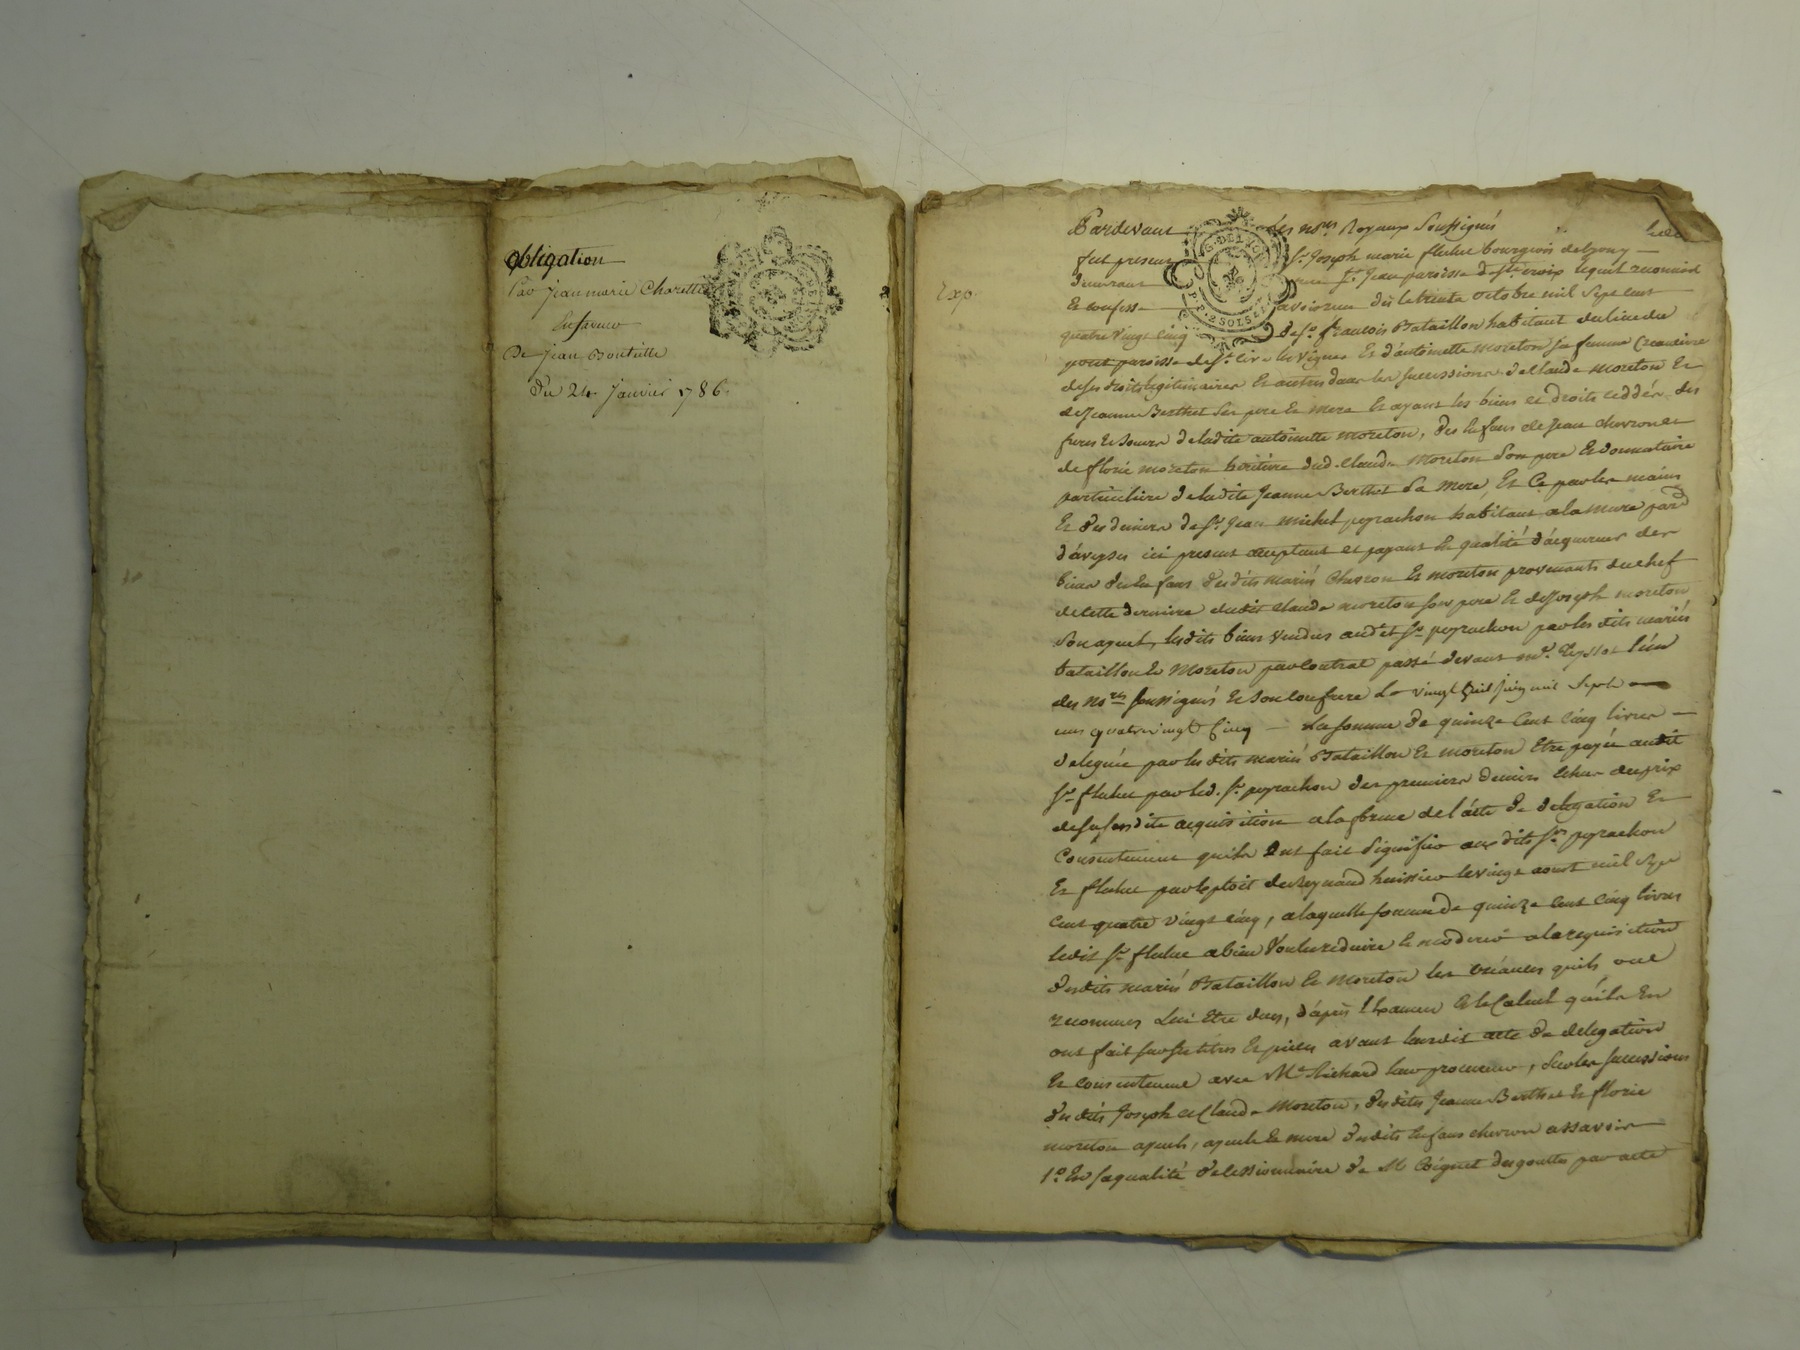 obligation
Par jean marie Charette
En faveur
De jean Bouteille
Du 24 janvier 1786
Exp.
Pardevant Les nores Royaux Soussignés
fut present Sr Joseph marie fluhet bourgeois de Lyon
demeurant St Jean paroisse de Ste croix lequel reconnoit
Et confesse avoir reçu dès le trente octobre mil sept cent
quatre vingt cinq de Sr francois Bataillon habitant du lieu du
pont paroisse de St Cir les vignes Et d'antoinette moreton sa femme Creancière
de ses droits légitimaires Et autres dans les successions de Claude moreton Et
de Jeanne Berthet Ses pere Et mere Et ayant les biens et droits ceddés des
freres Et Soeurs de ladite antoinette moreton, des Enfans de Jean chevron et
de florie moreton heritière dud. Claude moreton Son pere Et donnataire
particuliere de ladite Jeanne Berthet Sa mere, Et Ce par les mains
Et des deniers de Sr Jean michel peyrachon habitant a la mure parsse
d'aveyses ici present acceptant et payant En qualité d'acquereur des
biens des Enfans desdits mariés Chevron Et moreton provenants du chef
de cette derniere dudit Claude moreton son pere Et de Joseph moreton
Son ayeul, lesdits biens vendus audit Sr peyrachon par les dits mariés
bataillon Et Moreton par contrat passé devant me l'un
des nores soussignés Et Son confrere Le vingt huit juin mil Sept
cens quatrevingt Cinq La somme de quinze Cent Cinq livres
deleguée par les dits mariés Bataillon Et moreton Etre payée audit
Sr fluhet par led. Sr peyrachon des premiers deniers Echus du prix
de sa susdite acquisition a la forme de l'acte de delegation Et
Consentement quils Ont fait Signifier aux dits Srs peyrachon
Et fluhet par Exploit de Reynaud huissier le vingt aoust mil Sept
Cent quatre vingt cinq, a laquelle somme de quinze Cent Cinq livres
ledit Sr fluhet a bien Voulu reduire Et moderer a la requisition
desdits mariés Bataillon Et Moreton les créances quils ont
reconnues Lui Etre dues, d'après l'Examen Et le Calcul qu'ils En
ont fait sur ses titres Et pieces avant leurdit acte de delegation
Et consentement avec Me Richard leur procureur, Sur les successions
desdits Joseph et Claude Moreton, desdites Jeanne Berthet Et florie
moreton ayeuls, ayeule Et mere desdits Enfans chevron assavoir
1o En sa qualité de Cessionnaire de M. Coignet desgouttes par acte